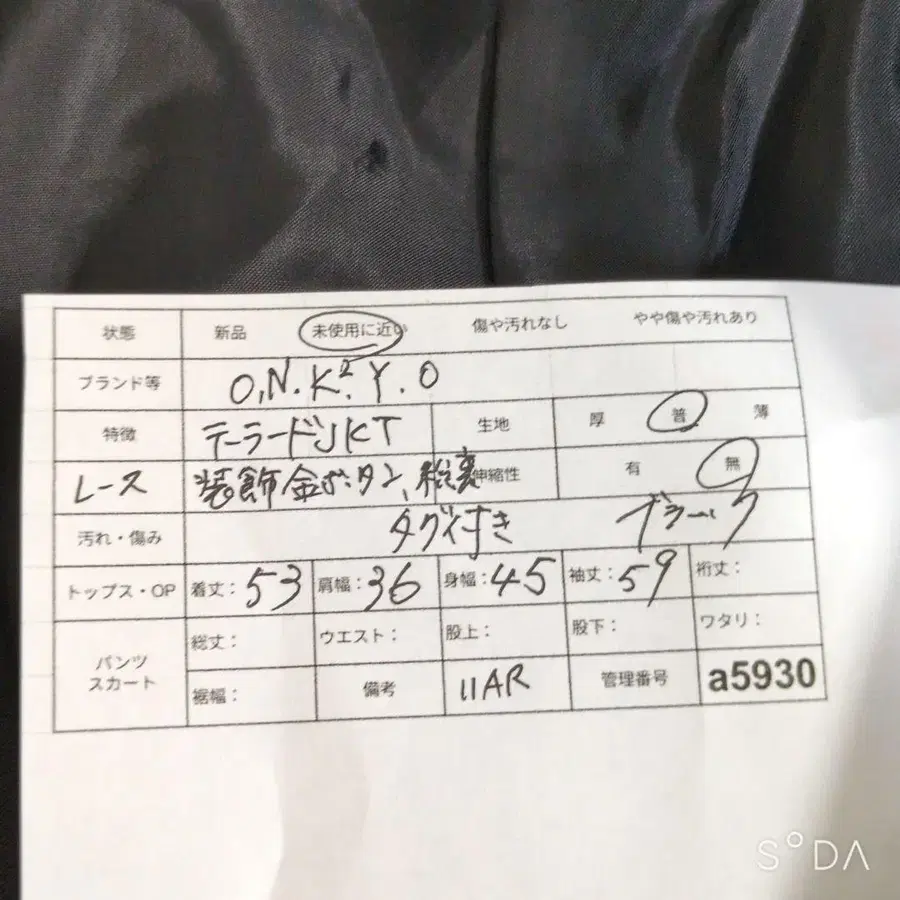 状態 新品 未使用に近い 傷や汚れなし やや傷や汚れあり
ブランド等 O.N.K².Y.O
特徴 テーラードJKT 生地 厚 普 薄
レース 装飾金ボタン、総裏 伸縮性 有 無
汚れ・傷み タグ付き ブラック
トップス・OP 着丈：53 肩幅：36 身幅：45 袖丈：59 裄丈：
パンツ スカート 総丈： ウエスト： 股上： 股下： ワタリ：
裾幅： 備考 11AR 管理番号 a5930
SODA